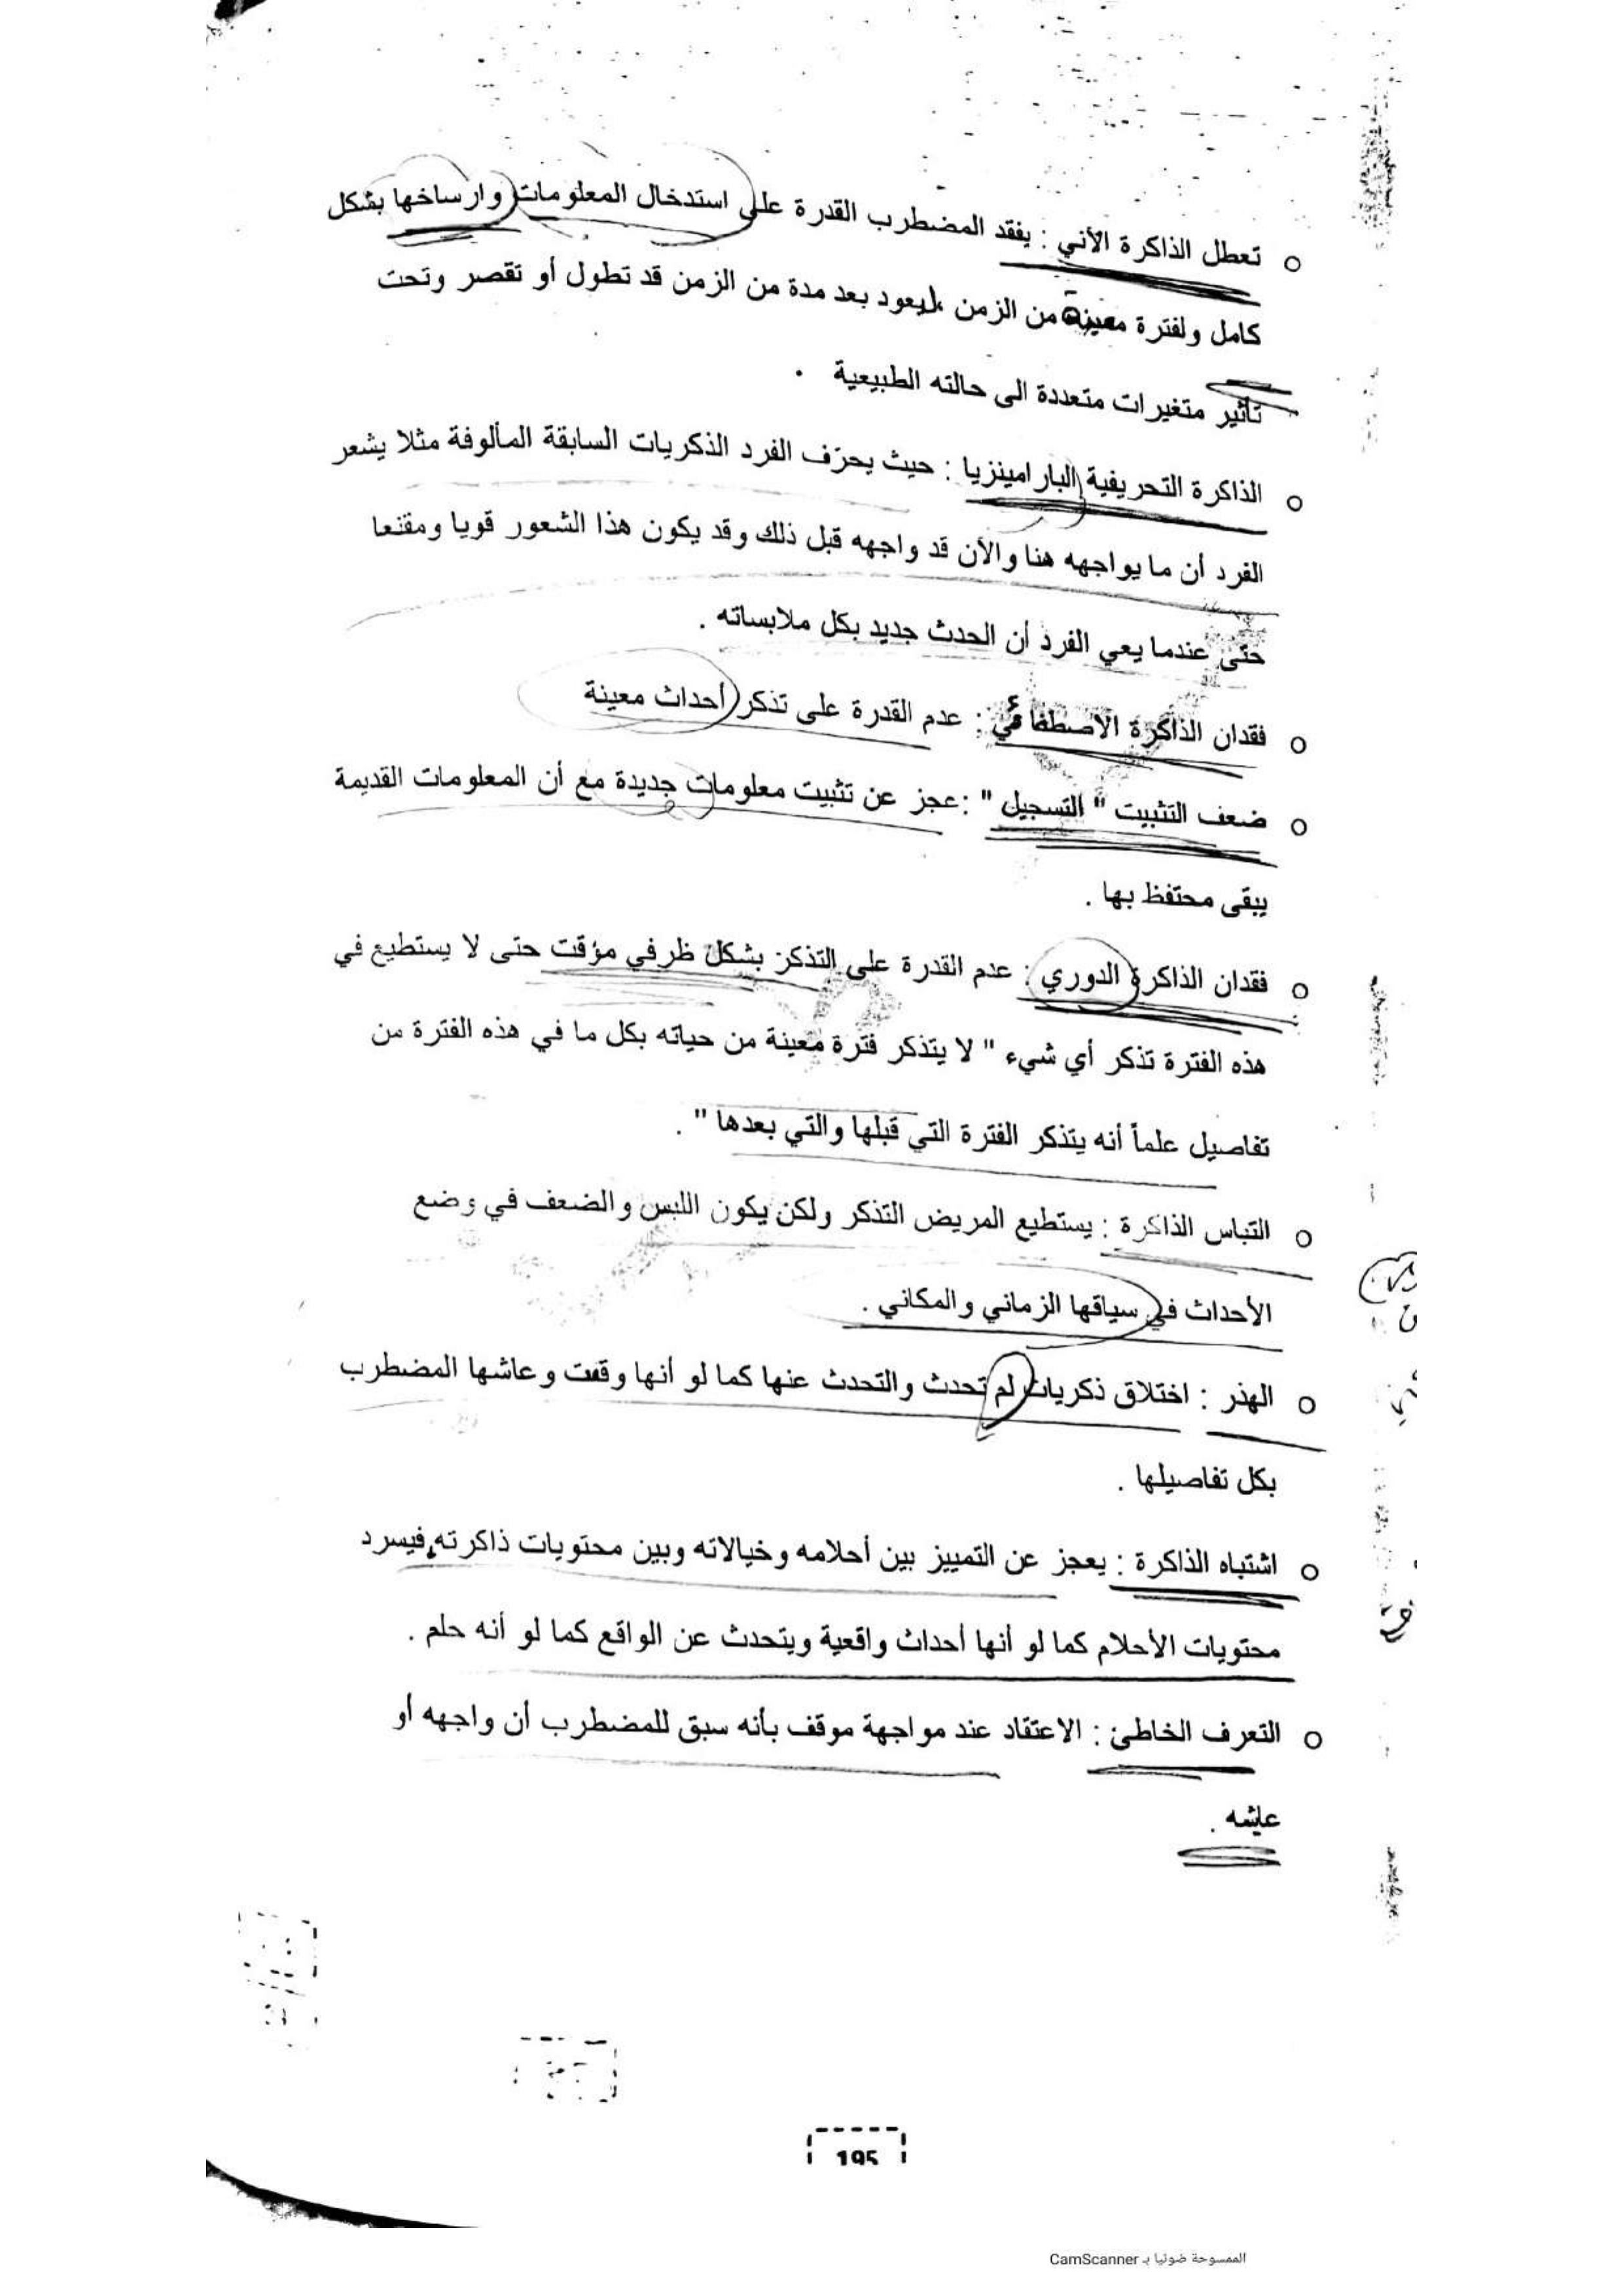 ○ تعطل الذاكرة الأني : يفقد المضطرب القدرة على استدخال المعلومات وارساخها بشكل
كامل ولفترة معينة من الزمن ليعود بعد مدة من الزمن قد تطول أو تقصر وتحت
تأثير متغيرات متعددة الى حالته الطبيعية .
○ الذاكرة التحريفية البارامينزيا : حيث يحرّف الفرد الذكريات السابقة المألوفة مثلا يشعر
الفرد أن ما يواجهه هنا والأن قد واجهه قبل ذلك وقد يكون هذا الشعور قويا ومقنعا
حتى عندما يعي الفرد أن الحدث جديد بكل ملابساته .
○ فقدان الذاكرة الاصطفائي : عدم القدرة على تذكر أحداث معينة
○ ضعف التثبيت " التسجيل " :عجز عن تثبيت معلومات جديدة مع أن المعلومات القديمة
يبقى محتفظ بها .
○ فقدان الذاكرة الدوري : عدم القدرة على التذكر بشكل ظرفي مؤقت حتى لا يستطيع في
هذه الفترة تذكر أي شيء " لا يتذكر فترة معينة من حياته بكل ما في هذه الفترة من
تفاصيل علماً أنه يتذكر الفترة التي قبلها والتي بعدها " .
○ التباس الذاكرة : يستطيع المريض التذكر ولكن يكون اللبس والضعف في وضع
الأحداث في سياقها الزماني والمكاني .
○ الهذر : اختلاق ذكريات لم تحدث والتحدث عنها كما لو أنها وقعت وعاشها المضطرب
بكل تفاصيلها .
○ اشتباه الذاكرة : يعجز عن التمييز بين أحلامه وخيالاته وبين محتويات ذاكرته فيسرد
محتويات الأحلام كما لو أنها أحداث واقعية ويتحدث عن الواقع كما لو أنه حلم .
○ التعرف الخاطئ : الاعتقاد عند مواجهة موقف بأنه سبق للمضطرب أن واجهه أو
عايشه .
195
الممسوحة ضوئيا بـ CamScanner